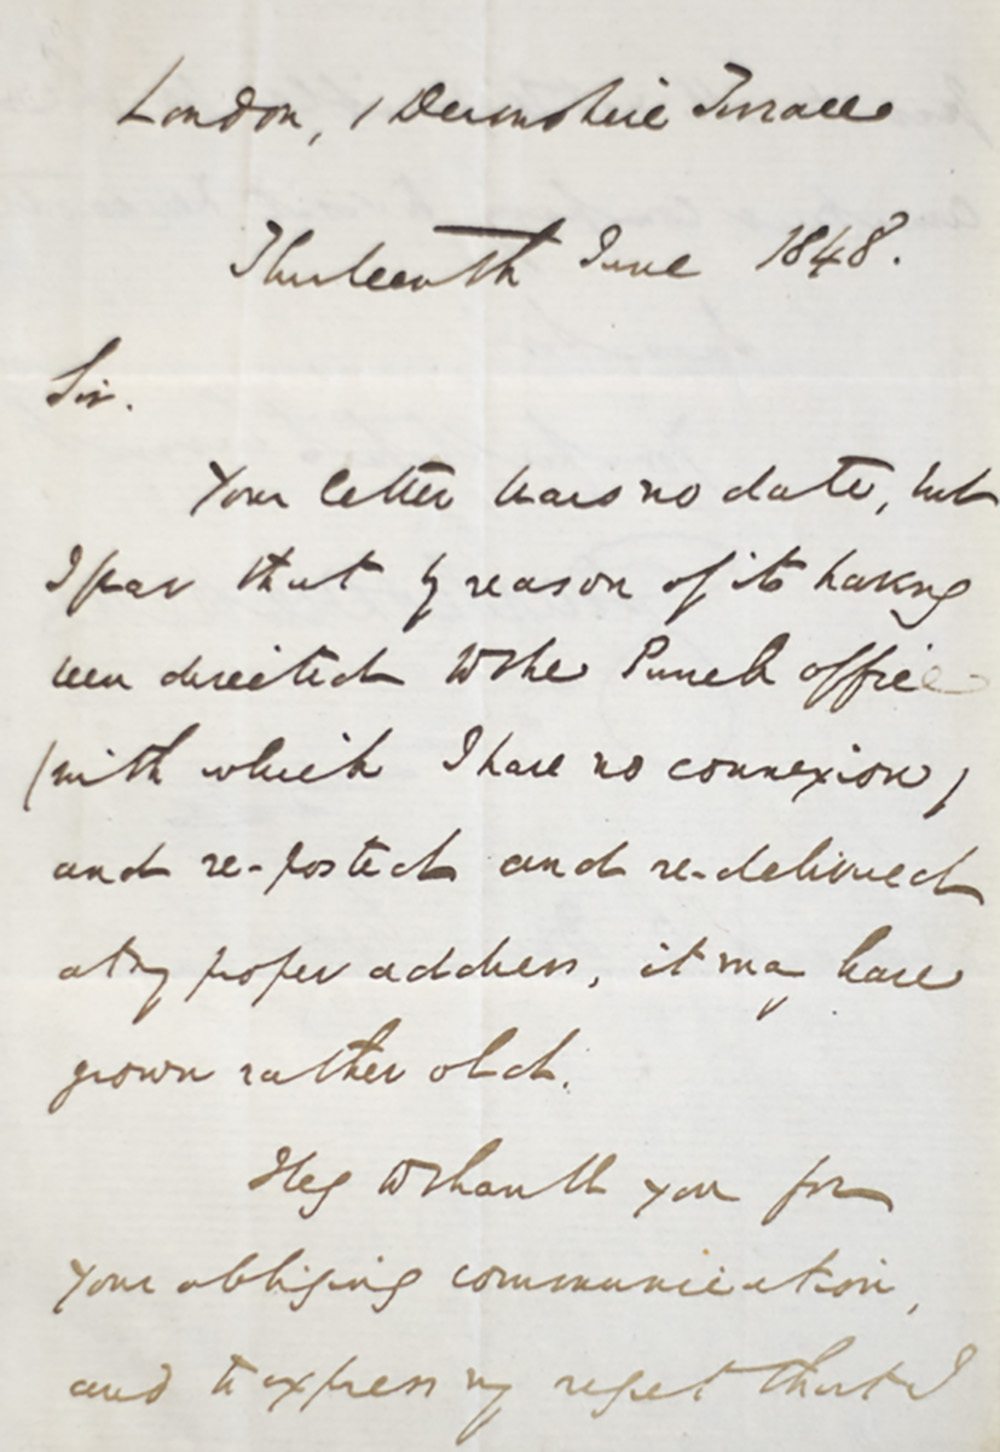 London, 1 Devonshire Terrace
Thirteenth June 1848.
Sir.
Your letter bears no date, but
I fear that by reason of its having
been directed to the Punch office
(with which I have no connexion)
and re-posted and re-delivered
at my proper address, it may have
grown rather old.
I beg to thank you for
your obliging communication,
and to express my regret that I